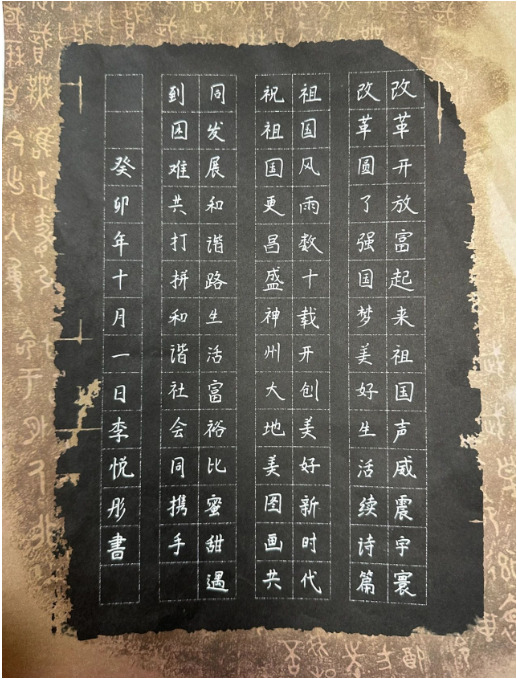 改革开放富起来祖国声威震宇寰
改革圆了强国梦美好生活续诗篇
祖国风雨数十载开创美好新时代
祝祖国更昌盛神州大地美图画共
同发展和谐路生活富裕比蜜甜遇
到困难共打拼和谐社会同携手
癸卯年十月一日李悦彤書